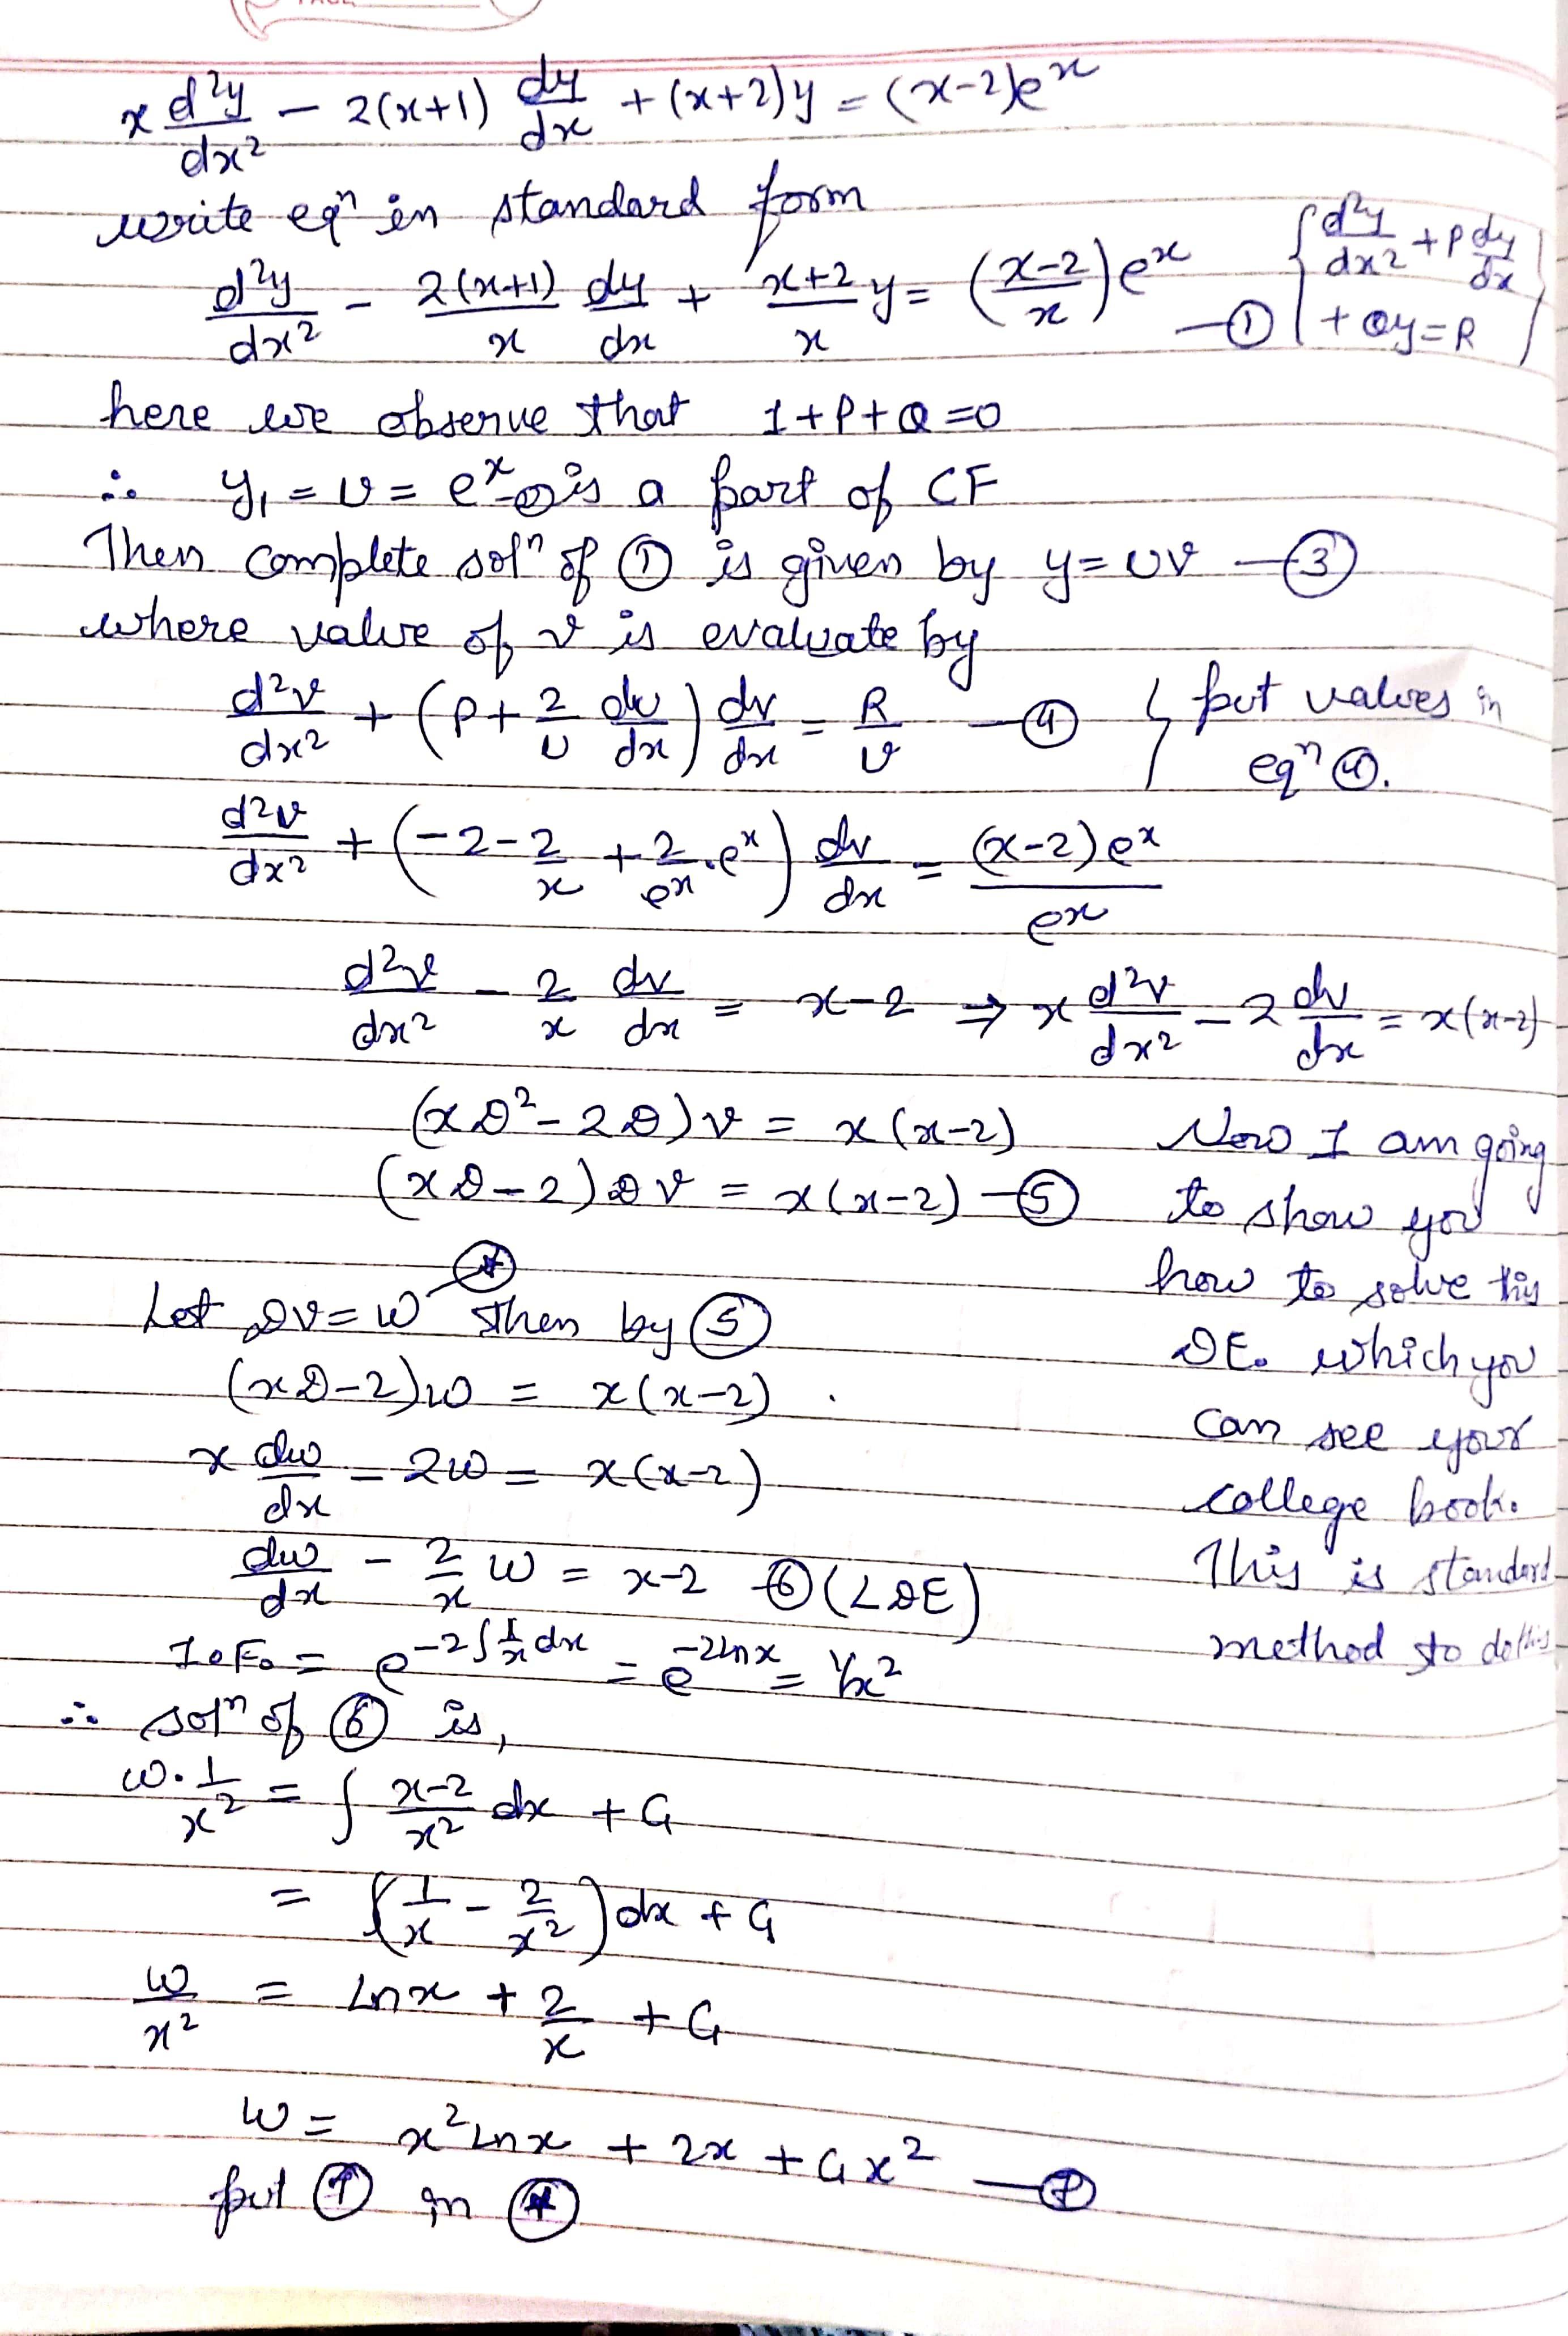 x d²y/dx² - 2(x+1) dy/dx + (x+2)y = (x-2)eˣ
write eqⁿ in standard form
d²y/dx² - 2(x+1)/x dy/dx + x+2/x y = (x-2/x)eˣ —① {d²y/dx² + P dy/dx + Qy = R}
here we observe that 1+P+Q=0
∴ y₁ = u = eˣ is a part of CF
Then complete solⁿ of ① is given by y = uv —③
where value of v is evaluate by
d²v/dx² + (P + 2/u du/dx) dv/dx = R/u —④ { put values in eqⁿ ④.
d²v/dx² + (-2 - 2/x + 2/eˣ . eˣ) dv/dx = (x-2)eˣ/eˣ
d²v/dx² - 2/x dv/dx = x-2 ⇒ x d²v/dx² - 2 dv/dx = x(x-2)
(xD² - 2D)v = x(x-2)
(xD - 2)Dv = x(x-2) —⑤
Now I am going
to show you
how to solve this
DE. which you
can see your
college book.
This is standard
method to do this
Let Dv = w —(*) Then by ⑤
(xD-2)w = x(x-2) .
x dw/dx - 2w = x(x-2)
dw/dx - 2/x w = x-2 —⑥ (LDE)
I.F. = e^(-2∫1/x dx) = e^(-2lnx) = 1/x²
∴ solⁿ of ⑥ is,
w. 1/x² = ∫ x-2/x² dx + C₁
= ∫(1/x - 2/x²)dx + C₁
w/x² = Lnx + 2/x + C₁
w = x² Lnx + 2x + C₁x² —⑦
put ⑦ in (*)